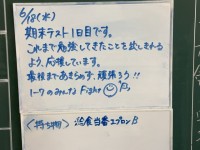 6/18(水)
期末テスト1日目です。
これまで勉強してきたことを試しきれる
よう、応援しています。
最後まであきらめず、頑張ろう!!
1-7のみんな Fight
〈持ち物〉 給食当番エプロンB